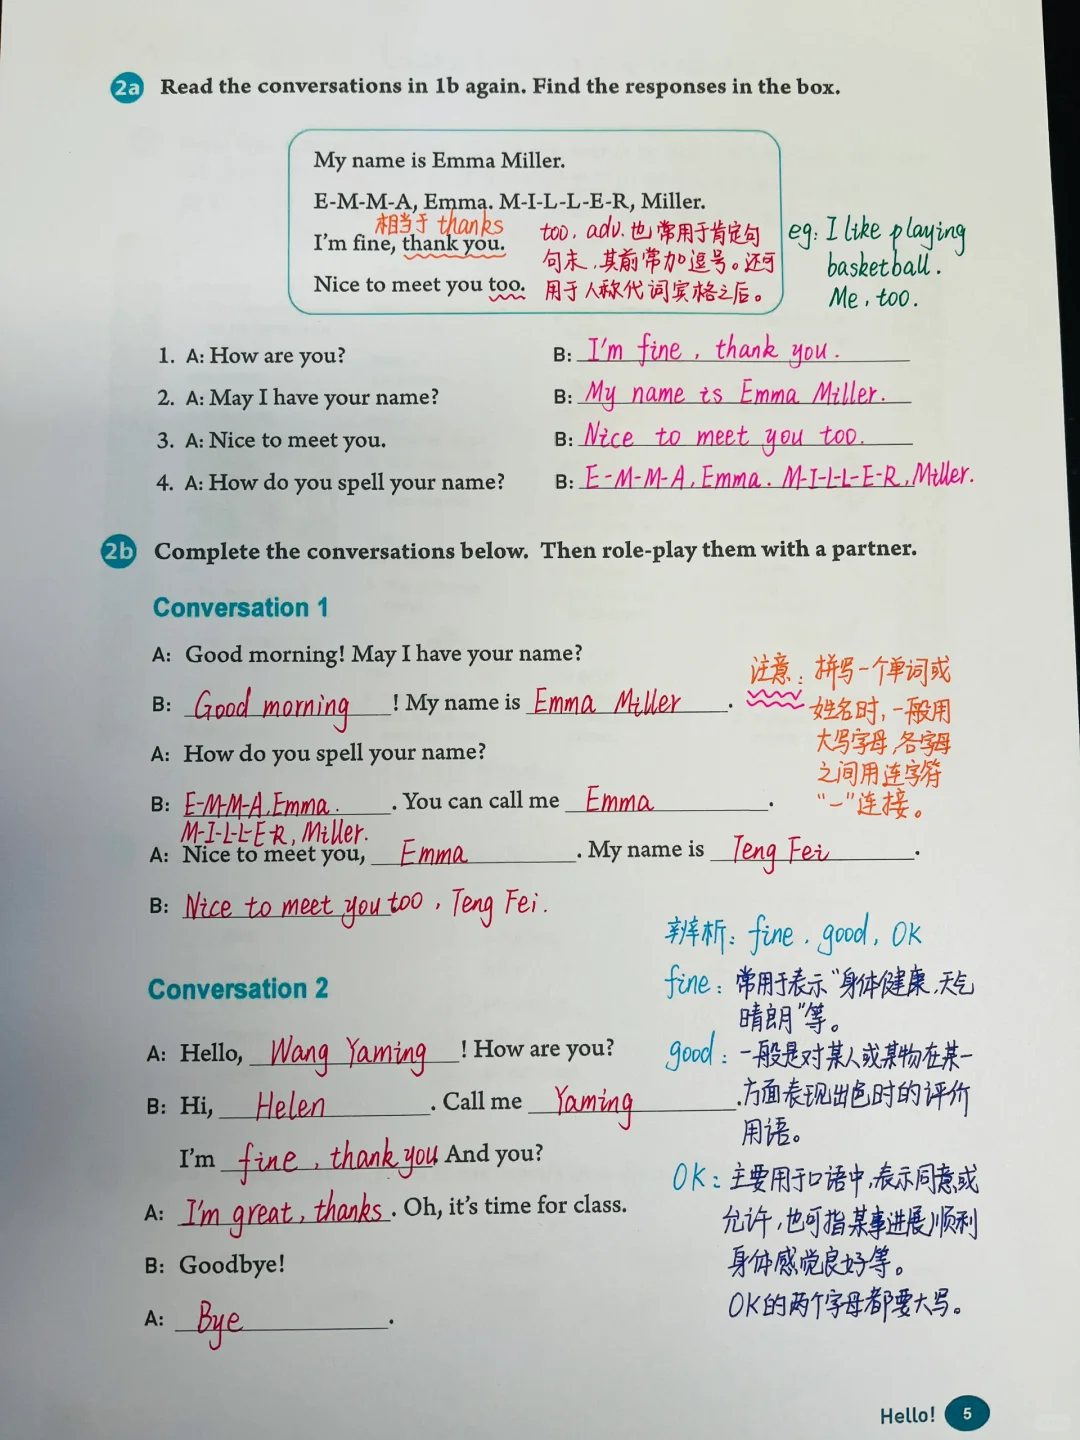 2a Read the conversations in 1b again. Find the responses in the box.
My name is Emma Miller.
E-M-M-A, Emma. M-I-L-L-E-R, Miller.
相当于 thanks
I'm fine, thank you.
Nice to meet you too.
too, adv. 也 常用于肯定句
句末，其前常加逗号。还可
用于人称代词宾格之后。
eg: I like playing
basketball.
Me, too.
1. A: How are you? B: I'm fine, thank you.
2. A: May I have your name? B: My name is Emma Miller.
3. A: Nice to meet you. B: Nice to meet you too.
4. A: How do you spell your name? B: E-M-M-A, Emma. M-I-L-L-E-R, Miller.
2b Complete the conversations below. Then role-play them with a partner.
Conversation 1
A: Good morning! May I have your name?
B: Good morning! My name is Emma Miller.
A: How do you spell your name?
B: E-M-M-A, Emma. . You can call me Emma.
M-I-L-L-E-R, Miller.
A: Nice to meet you, Emma. My name is Teng Fei.
B: Nice to meet you too, Teng Fei.
注意：拼写一个单词或
姓名时，一般用
大写字母，各字母
之间用连字符
“-”连接。
Conversation 2
A: Hello, Wang Yaming! How are you?
B: Hi, Helen. Call me Yaming.
I'm fine, thank you. And you?
A: I'm great, thanks. Oh, it's time for class.
B: Goodbye!
A: Bye.
辨析：fine, good, OK
fine：常用于表示“身体健康，天气
晴朗”等。
good：一般是对某人或某物在某一
方面表现出色时的评价
用语。
OK：主要用于口语中，表示同意或
允许，也可指某事进展顺利
身体感觉良好等。
OK的两个字母都要大写。
Hello! 5